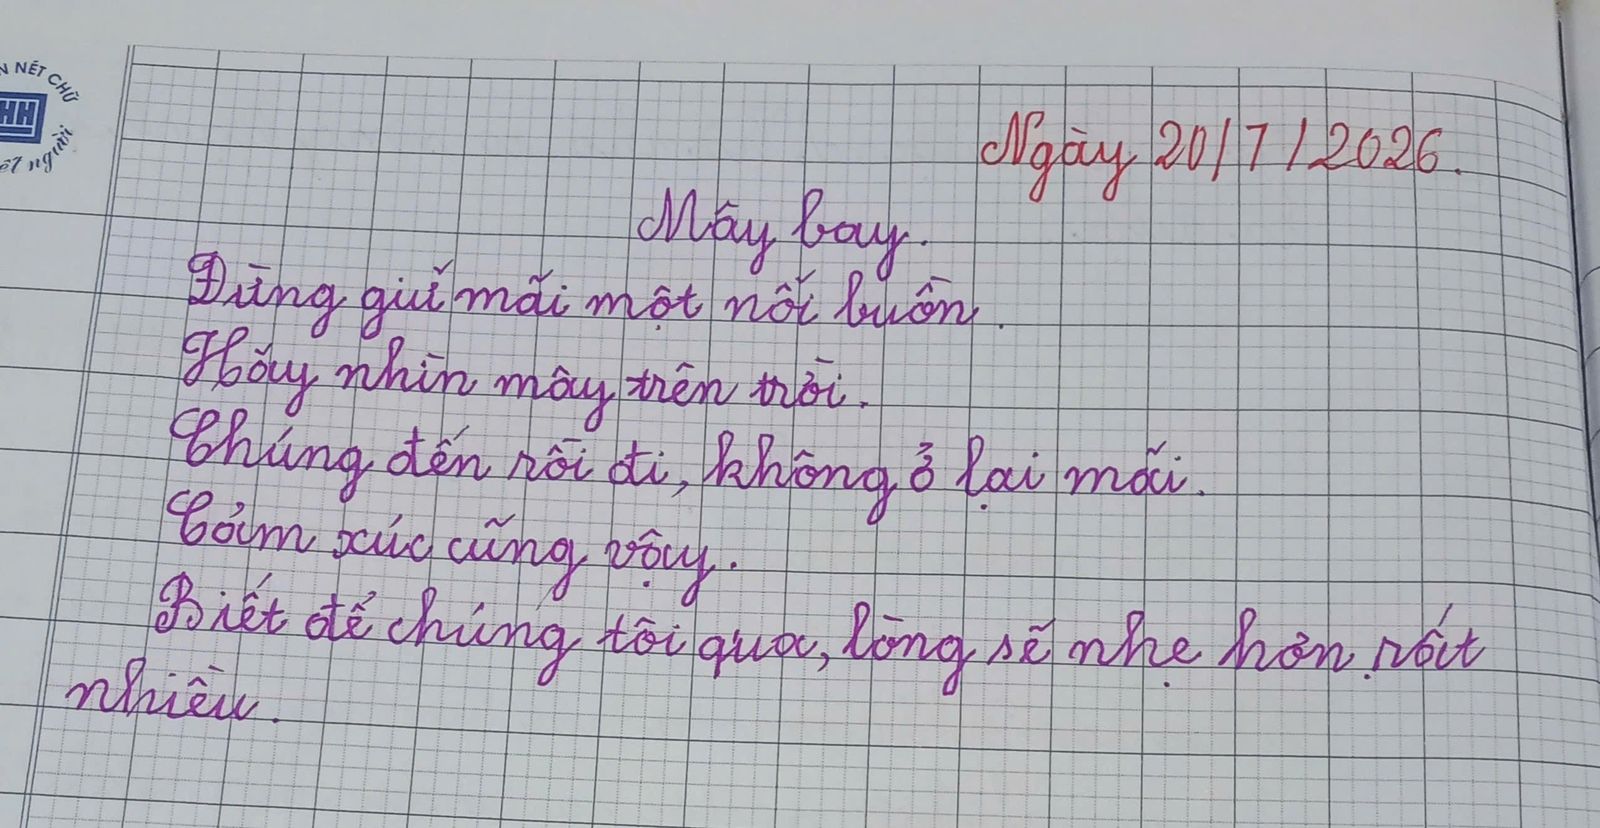 N NÉT CHỮ
HH
ết người
Ngày 20/7/2026.
Mây bay.
Đừng giữ mãi một nỗi buồn.
Hãy nhìn mây trên trời.
Chúng đến rồi đi, không ở lại mãi.
Cảm xúc cũng vậy.
Biết để chúng tôi qua, lòng sẽ nhẹ hơn rất
nhiều.